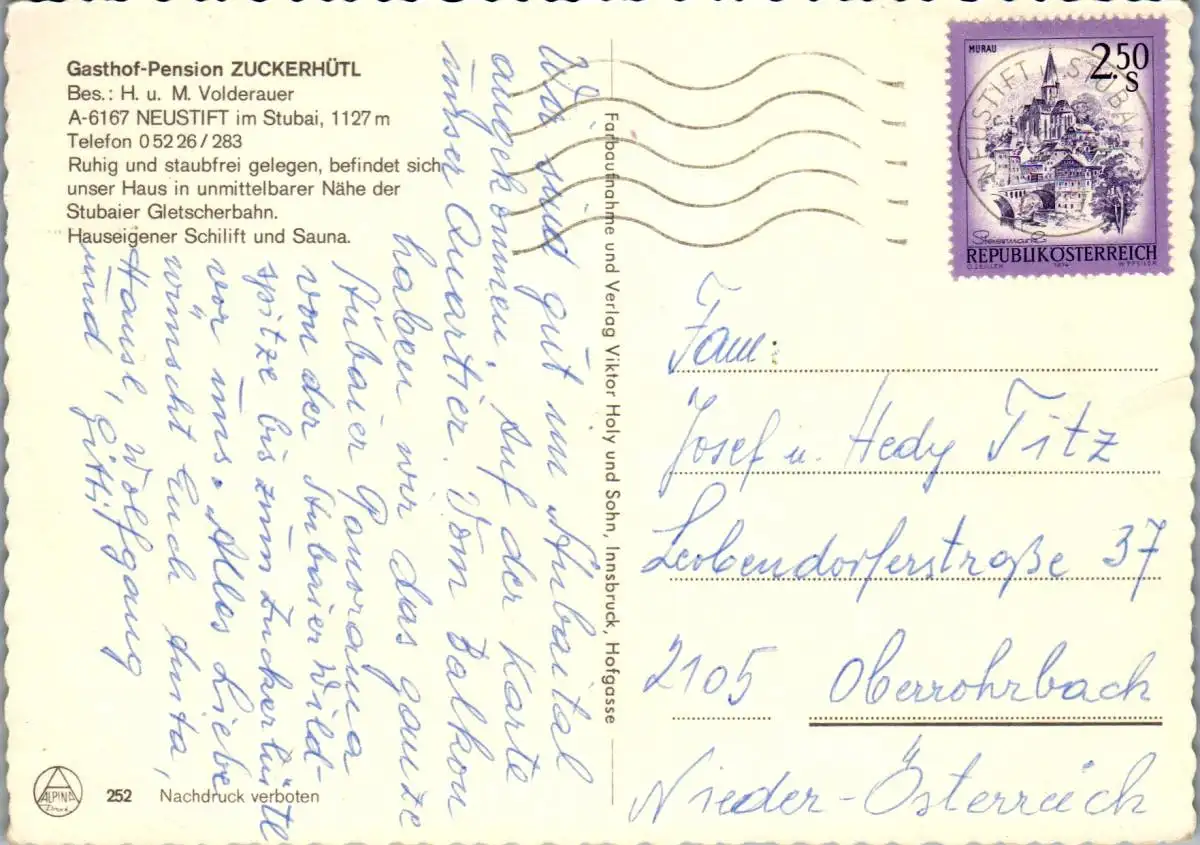 Gasthof-Pension ZUCKERHÜTL
Bes.: H. u. M. Volderauer
A-6167 NEUSTIFT im Stubai, 1127 m
Telefon 0 52 26 / 283
Ruhig und staubfrei gelegen, befindet sich
unser Haus in unmittelbarer Nähe der
Stubaier Gletscherbahn.
Hauseigener Schilift und Sauna.
Wir sind gut im Stubaital
angekommen. Auf der Karte
unser Quartier. Vom Balkon
haben wir das ganze
Stubaier Panorama
von der Stubaier Wild-
spitze bis zum Zuckerhütl
vor uns. Alles Liebe
wünscht Euch Austa,
Hansl, Wolfgang
und Gitti
Farbaufnahme und Verlag Viktor Holy und Sohn, Innsbruck, Hofgasse
MURAU
2.50
S
Steiermark
REPUBLIK ÖSTERREICH
O. ZEILLER 1974 W. PFEILER
NEUSTIFT i. STUBAITAL
Fam:
Josef u. Hedy Titz
Leobendorferstraße 37
2105 Oberrohrbach
Nieder-Österreich
ALPINA
Druck
252 Nachdruck verboten